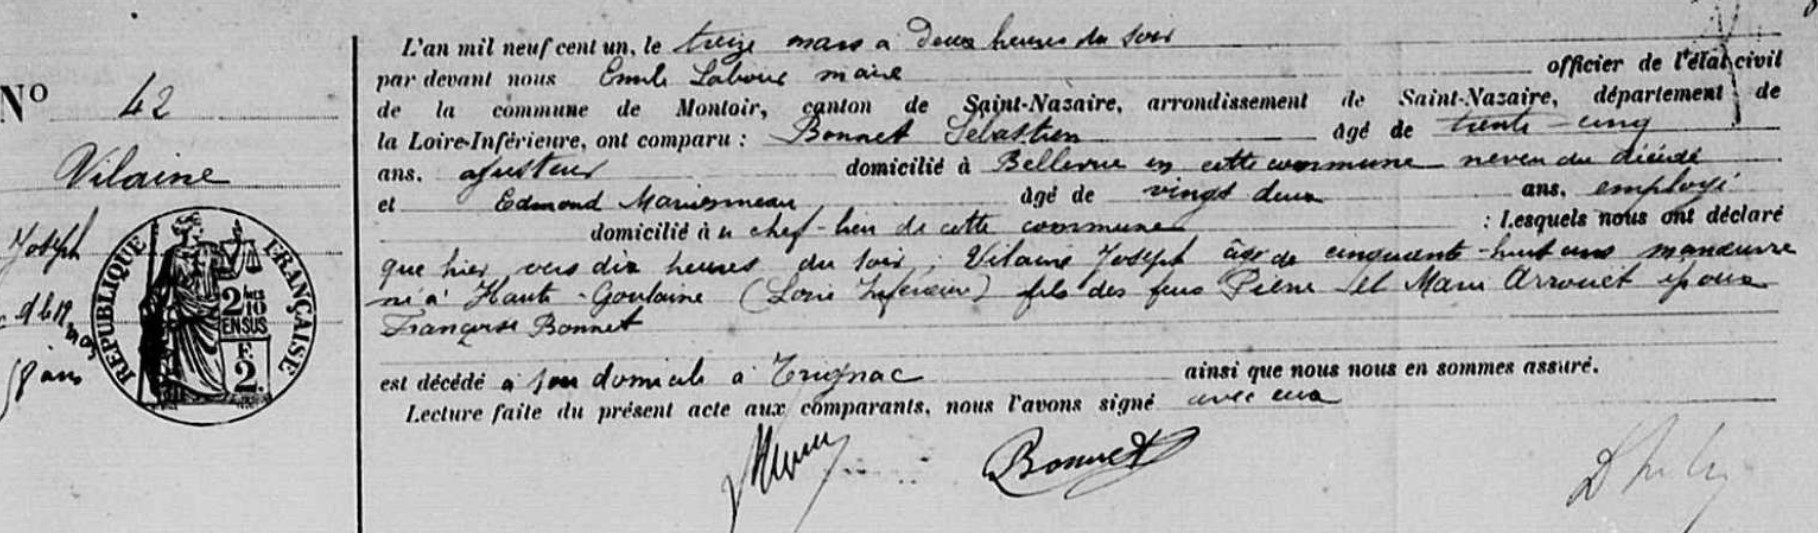 N° 42
Vilaine
Joseph
d le 12 mars
58 ans
RÉPUBLIQUE FRANÇAISE
2 MES
10
EN SUS
F.
2.
L'an mil neuf cent un, le treize mars à deux heures du soir
par devant nous Emile maire officier de l'état civil
de la commune de Montoir, canton de Saint-Nazaire, arrondissement de Saint-Nazaire, département de
la Loire-Inférieure, ont comparu : Bonnet Sébastien âgé de trente-cinq
ans, ajusteur domicilié à Bellevue en cette commune neveu du décédé
et Edmond âgé de vingt deux ans, employé
domicilié à u chef-lieu de cette commune : Lesquels nous ont déclaré
que hier vers dix heures du soir, Vilaine Joseph âgé de cinquante-huit ans manœuvre
né à Haute-Goulaine (Loire Inférieure) fils des feus Pierre et Marie Arrouët époux
Françoise Bonnet
est décédé à son domicile à Trignac ainsi que nous nous en sommes assuré.
Lecture faite du présent acte aux comparants, nous l'avons signé avec eux
Bonnet